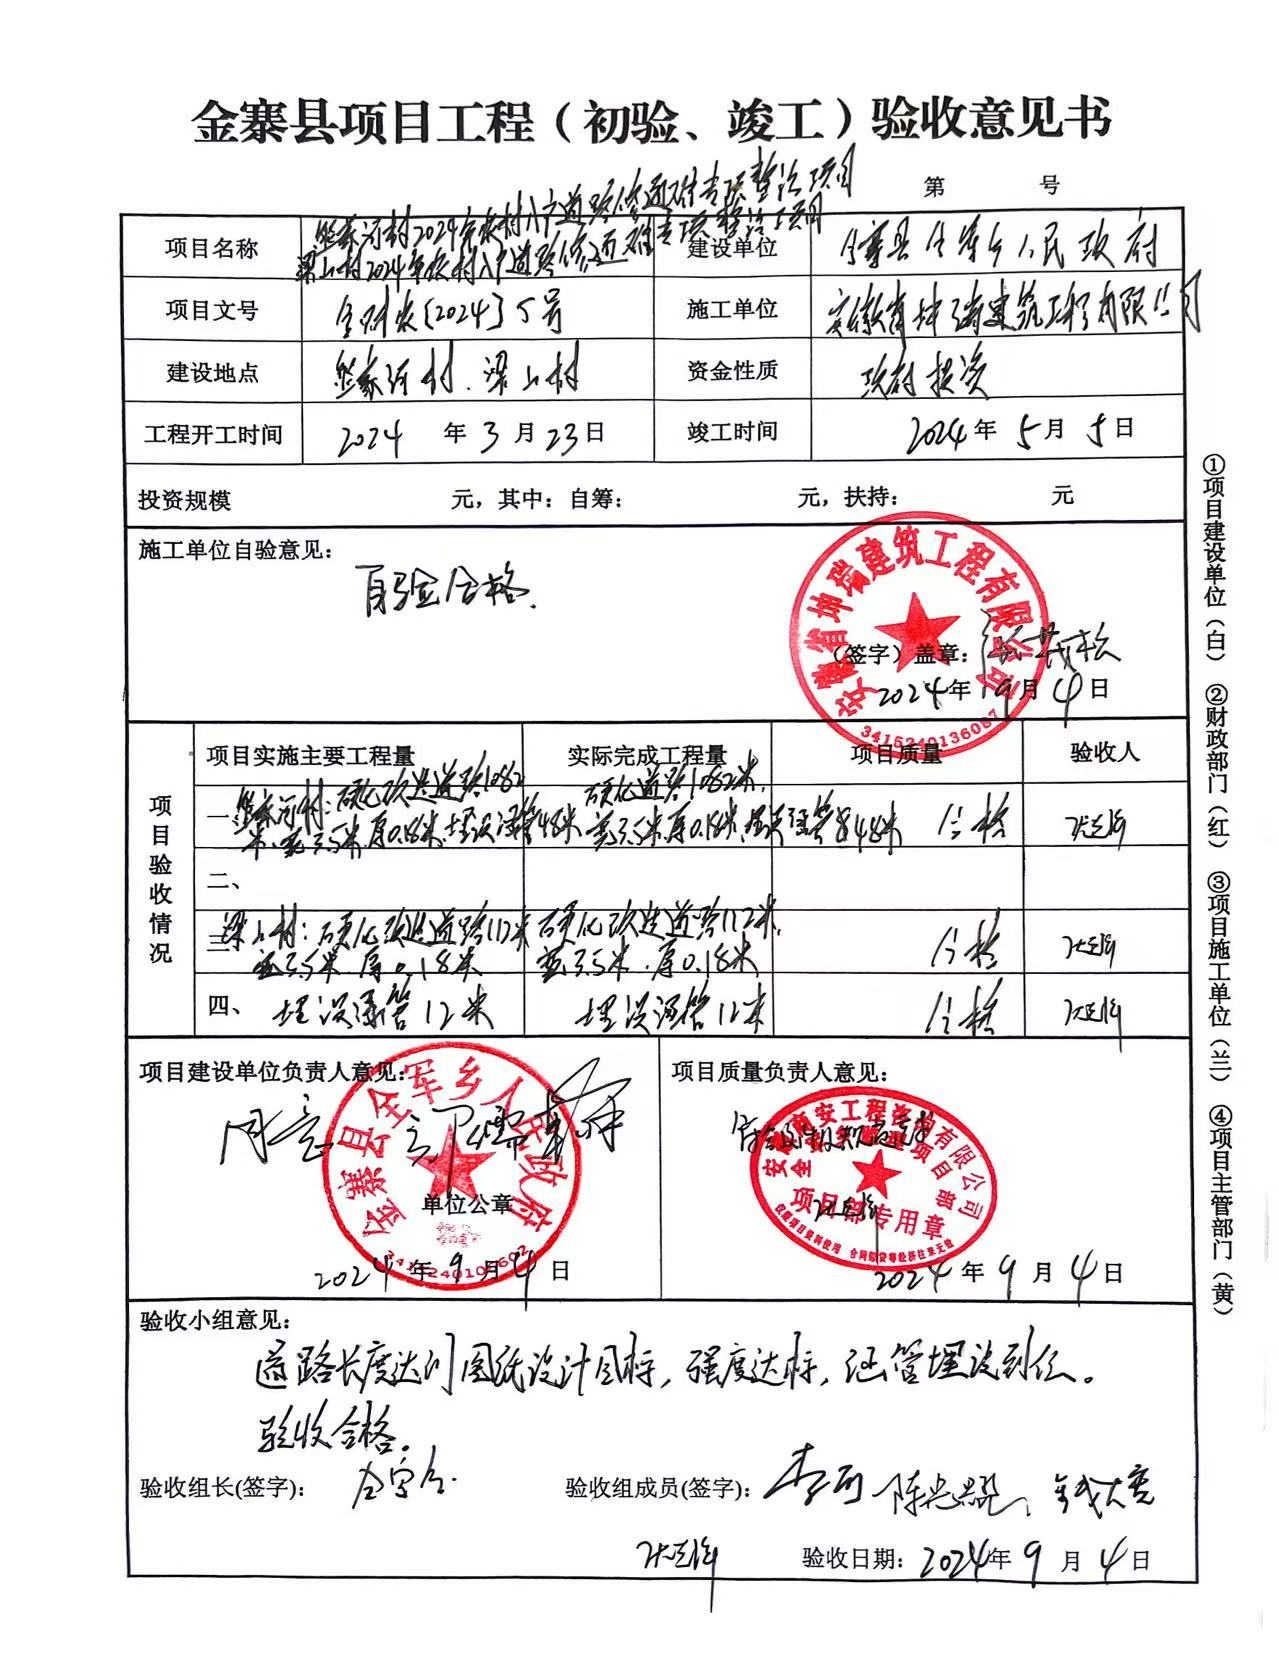 金寨县项目工程（初验、竣工）验收意见书
第 号
项目名称 熊家河村2024年农村入户道路修通硬化专项整治项目
梁上村2024年农村入户道路修通硬化专项整治项目
建设单位 金寨县全军乡人民政府
项目文号 金财农〔2024〕5号 施工单位 安徽省坤瑞建筑工程有限公司
建设地点 熊家河村、梁上村 资金性质 政府投资
工程开工时间 2024 年 3 月 23 日 竣工时间 2024 年 5 月 5 日
投资规模 元，其中：自筹： 元，扶持： 元
施工单位自验意见：
自验合格.
安徽省坤瑞建筑工程有限公司
3415240136087
（签字）盖章：
2024 年 9 月 4 日
项目验收情况
项目实施主要工程量 实际完成工程量 项目质量 验收人
一、熊家河村：硬化改造道路1082米，宽3.5米，厚0.18米，埋设涵管48米 硬化道路1082米，宽3.5米，厚0.18米，埋设涵管48米 合格
二、
三、梁上村：硬化改造道路112米 宽3.5米 厚0.18米 硬化改造道路112米，宽3.5米，厚0.18米 合格
四、埋设涵管12米 埋设涵管12米 合格
项目建设单位负责人意见：
金寨县全军乡人民政府
单位公章
2024 年 9 月 4 日
项目质量负责人意见：
项目部专用章
2024 年 9 月 4 日
验收小组意见：
道路长度达到图纸设计目标，强度达标，涵管埋设到位。
验收合格。
验收组长(签字)：
验收组成员(签字)：
验收日期：2024年 9 月 4 日
①项目建设单位（白） ②财政部门（红） ③项目施工单位（兰） ④项目主管部门（黄）